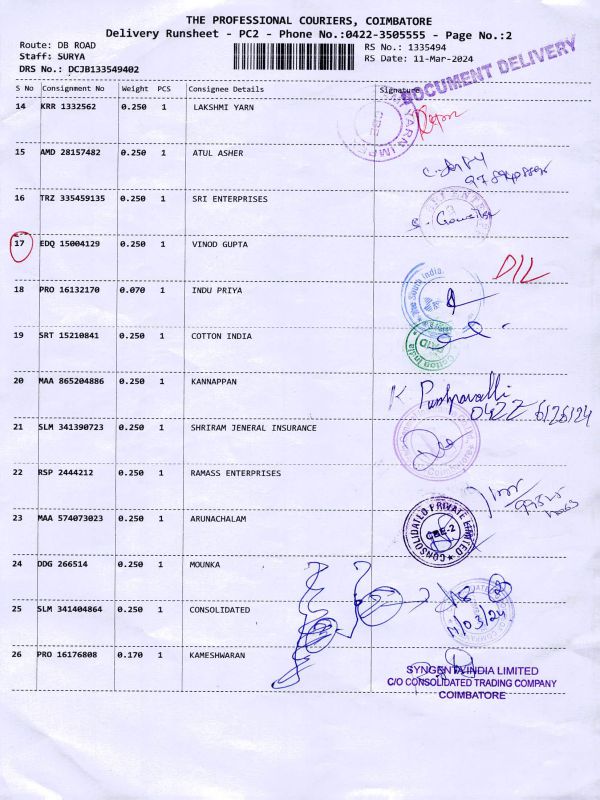 THE PROFESSIONAL COURIERS, COIMBATORE
Delivery Runsheet - PC2 - Phone No.:0422-3505555 - Page No.:2
Route: DB ROAD
Staff: SURYA
DRS No.: DCJB133549402
RS No.: 1335494
RS Date: 11-Mar-2024
DOCUMENT DELIVERY
S No Consignment No Weight PCS Consignee Details Signature
14 KRR 1332562 0.250 1 LAKSHMI YARN
15 AMD 28157482 0.250 1 ATUL ASHER
16 TRZ 335459135 0.250 1 SRI ENTERPRISES
17 EDQ 15004129 0.250 1 VINOD GUPTA
DIL
18 PRO 16132170 0.070 1 INDU PRIYA
The South India
19 SRT 15210841 0.250 1 COTTON INDIA
Cotton India
20 MAA 865204886 0.250 1 KANNAPPAN
K Pushpavalli
0422 6126124
21 SLM 341390723 0.250 1 SHRIRAM JENERAL INSURANCE
22 RSP 2444212 0.250 1 RAMASS ENTERPRISES
23 MAA 574073023 0.250 1 ARUNACHALAM
CONSOLIDATLO PRIVATE LIMITED
CBE-2
24 DDG 266514 0.250 1 MOUNKA
25 SLM 341404864 0.250 1 CONSOLIDATED
11/03/24
26 PRO 16176808 0.170 1 KAMESHWARAN
SYNGENTA INDIA LIMITED
C/O CONSOLIDATED TRADING COMPANY
COIMBATORE